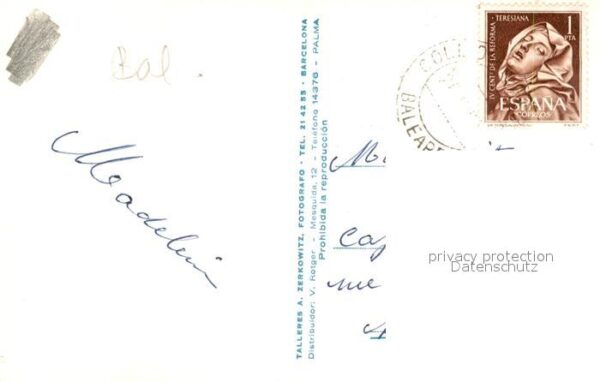 Bal.
Madelein
TALLERES A. ZERKOWITZ, FOTOGRAFO - TEL. 21 42 55 - BARCELONA
Distribuidor: V. Rotger - Mesquida, 12 - Teléfono 14376 - PALMA
Prohibida la reproducción
IV CENTº DE LA REFORMA TERESIANA
1 PTA
ESPAÑA
CORREOS
COLL
BALEAR
M
Cap
me
privacy protection
Datenschutz